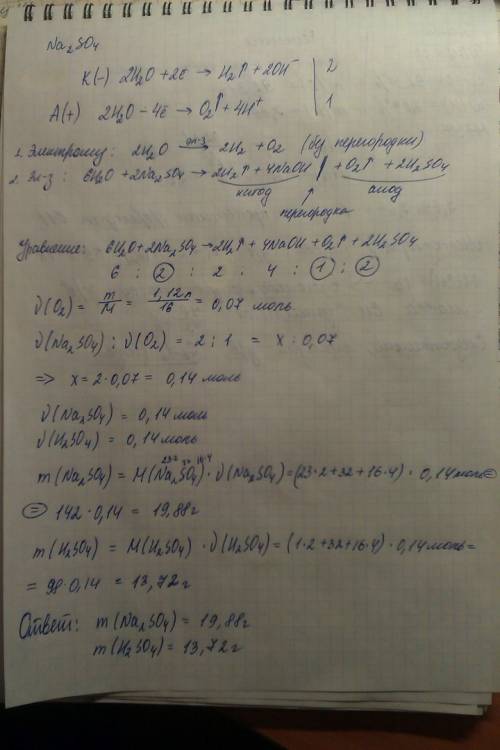 Na₂SO₄
К(-) 2H₂O + 2ē → H₂↑ + 2OH⁻ | 2
A(+) 2H₂O - 4ē → O₂↑ + 4H⁺ | 1
1. Электролиз: 2H₂O эл-з→ 2H₂ + O₂ (без перегородки)
2. Эл-з: 6H₂O + 2Na₂SO₄ → 2H₂↑ + 4NaOH | + O₂↑ + 2H₂SO₄
катод анод
перегородка
Уравнение: 6H₂O + 2Na₂SO₄ → 2H₂↑ + 4NaOH + O₂↑ + 2H₂SO₄
6 : 2 : 2 : 4 : 1 : 2
ν(O₂) = m/M = 1,12л/16 = 0,07 моль
ν(Na₂SO₄) : ν(O₂) = 2 : 1 = x : 0,07
=> x = 2·0,07 = 0,14 моль
ν(Na₂SO₄) = 0,14 моль
ν(H₂SO₄) = 0,14 моль
m(Na₂SO₄) = M(Na₂SO₄)·ν(Na₂SO₄) = (23·2+32+16·4)·0,14 моль =
= 142·0,14 = 19,88г
m(H₂SO₄) = M(H₂SO₄)·ν(H₂SO₄) = (1·2+32+16·4)·0,14 моль =
= 98·0,14 = 13,72г
Ответ: m(Na₂SO₄) = 19,88г
m(H₂SO₄) = 13,72г